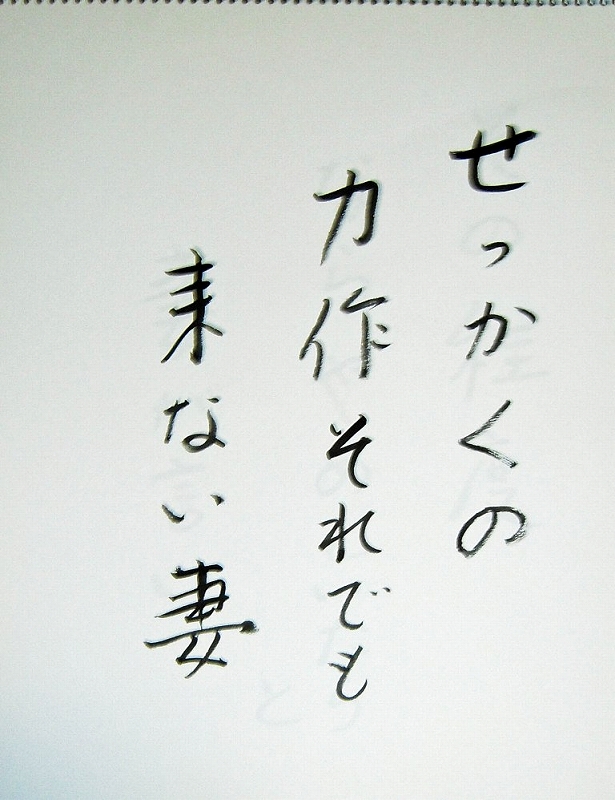 せっかくの
力作それでも
来ない妻